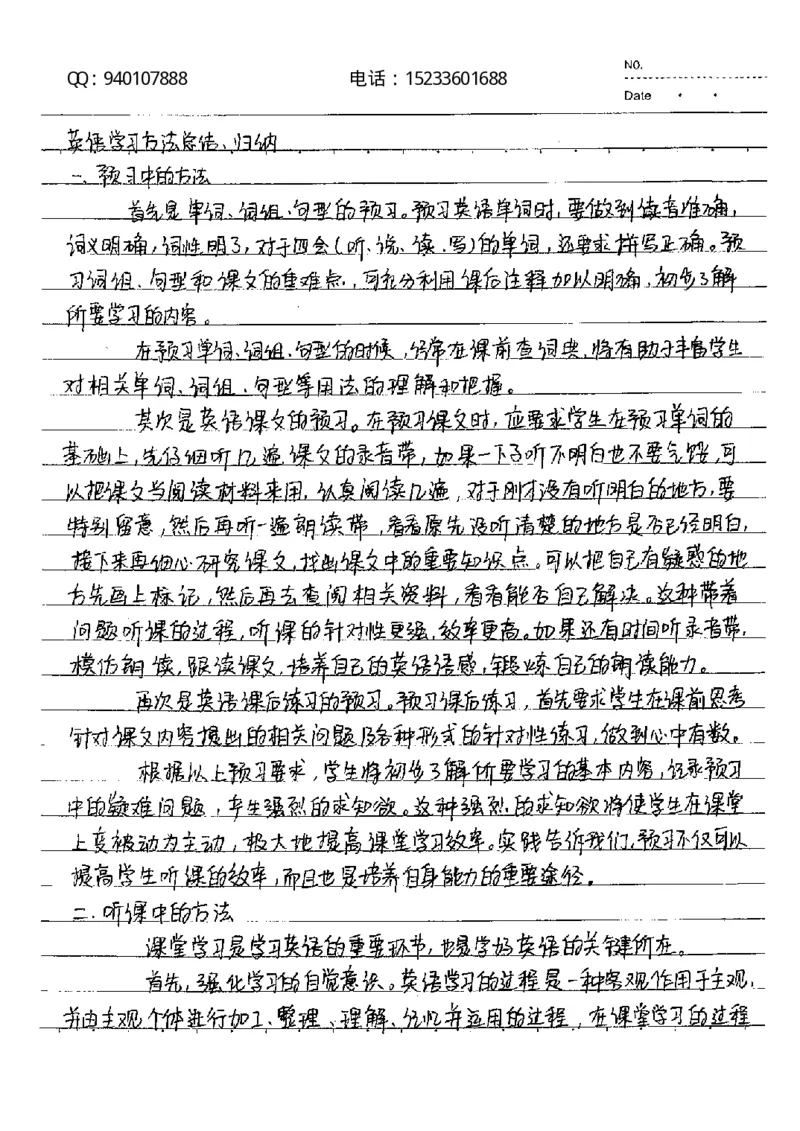 QQ：940107888 电话：15233601688 NO.
Date
英语学习方法总结、归纳
一、预习中的方法
首先是单词、词组、句型的预习。预习英语单词时，要做到读音准确，
词义明确，词性明了，对于四会（听、说、读、写）的单词，还要求拼写正确。预
习词组、句型和课文的重难点，可充分利用课后注释加以明确，初步了解
所要学习的内容。
在预习单词、词组、句型的时候，经常在课前查词典，将有助于丰富学生
对相关单词、词组、句型等用法的理解和把握。
其次是英语课文的预习。在预习课文时，应要求学生在预习单词的
基础上，先仔细听几遍课文的录音带，如果一下子听不明白也不要气馁，可
以把课文当阅读材料来用，认真阅读几遍，对于刚才没有听明白的地方，要
特别留意，然后再听一遍朗读带，看看原先没听清楚的地方是否已经明白，
接下来再细心研究课文，找出课文中的重要知识点。可以把自己有疑惑的地
方先画上标记，然后再去查阅相关资料，看看能否自己解决。这种带着
问题听课的过程，听课的针对性更强，效率更高。如果还有时间听录音带，
模仿朗读，跟读课文，培养自己的英语语感，锻炼自己的朗读能力。
再次是英语课后练习的预习。预习课后练习，首先要求学生在课前思考
针对课文内容提出的相关问题及各种形式的针对性练习，做到心中有数。
根据以上预习要求，学生将初步了解所要学习的基本内容，记录预习
中的疑难问题，产生强烈的求知欲。这种强烈的求知欲将使学生在课堂
上变被动为主动，极大地提高课堂学习效率。实践告诉我们，预习不仅可以
提高学生听课的效率，而且也是培养自身能力的重要途径。
二、听课中的方法
课堂学习是学习英语的重要环节，也是学好英语的关键所在。
首先，强化学习的自觉意识。英语学习的过程是一种客观作用于主观，
并由主观个体进行加工、整理、理解、记忆并运用的过程，在课堂学习的过程